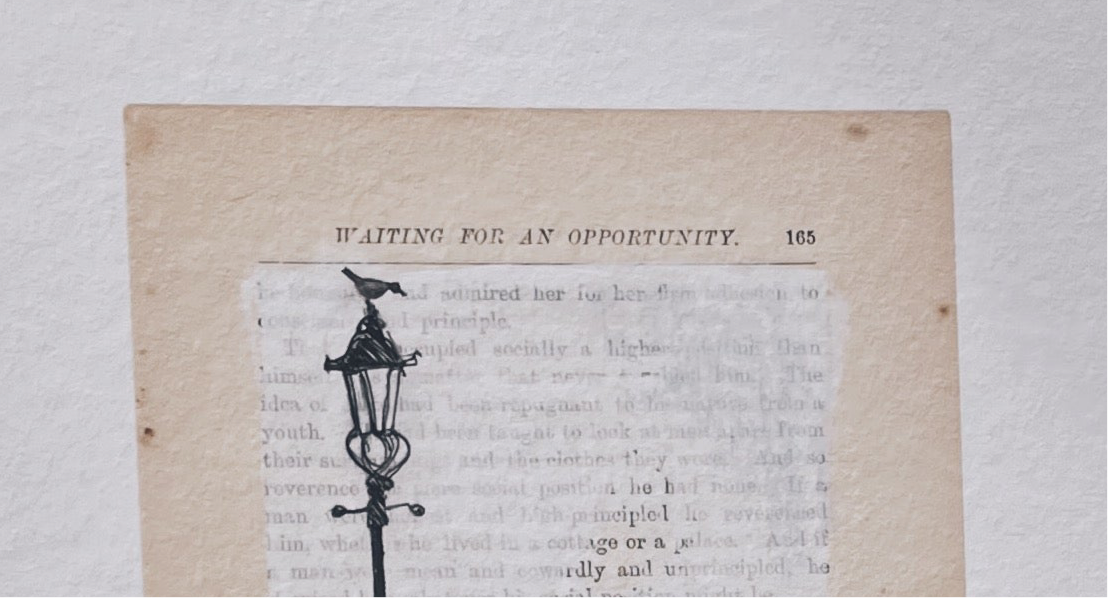 WAITING FOR AN OPPORTUNITY. 165
and admired her for her firm adhesion to
principle.
occupied socially a higher than
that never him. The
idea of had been repugnant to his nature from a
youth. had been taught to look at men apart from
their and the clothes they wore. And so
reverence mere social position he had none. If a
man were and high-principled he reverenced
him, whether he lived in a cottage or a palace. And if
a man mean and cowardly and unprincipled, he
social position might be